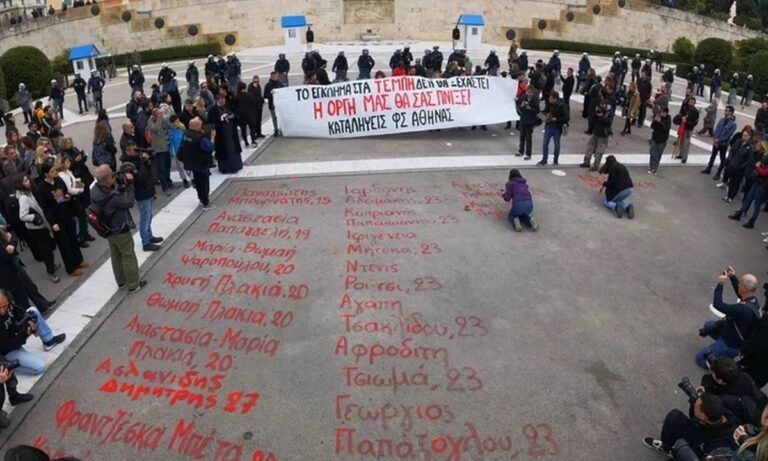 ΤΟ ΕΓΚΛΗΜΑ ΣΤΑ ΤΕΜΠΗ ΔΕΝ ΘΑ ΞΕΧΑΣΤΕΙ
Η ΟΡΓΗ ΜΑΣ ΘΑ ΣΑΣ ΠΝΙΞΕΙ
ΚΑΤΑΛΗΨΕΙΣ ΦΣ ΑΘΗΝΑΣ
Παναγιώτης
Μπουρνάζης, 15
Αναστασία
Παπαγγελή, 19
Μαρία-Θωμαή
Ψαροπούλου, 20
Χρυσή Πλακιά, 20
Θωμαή Πλακιά, 20
Αναστασία-Μαρία
Πλακιά, 20
Ασλανίδης
Δημήτρης 27
Φραντζέσκα Μπέζα
Ιορδάνης
Αδαμάκης, 23
Κυπριανός
Παπαϊωάννου, 23
Ιφιγένεια
Μήτσκα, 23
Ντενίς
Ρούτσι, 23
Αγάπη
Τσακλίδου, 23
Αφροδίτη
Τσιωμά, 23
Γεώργιος
Παπάζογλου, 23